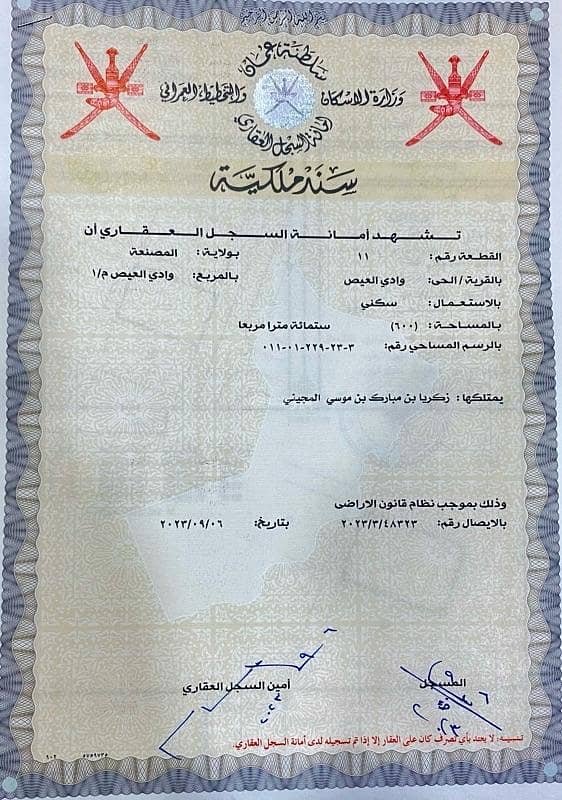 بسم الله الرحمن الرحيم
سلطنة عمان
وزارة الاسكان والتخطيط العمراني
أمانة السجل العقاري
سند ملكية
تشهد أمانة السجل العقاري أن
القطعة رقم: ١١ بولاية: المصنعة
بالقرية / الحى: وادي العيص بالمربع: وادي العيص م/١
بالاستعمال: سكني
بالمساحة: (٦٠٠) ستمائة مترا مربعا
بالرسم المساحي رقم: ٣-٢٣-٢٢٩-٠١-٠١١
يمتلكها: زكريا بن مبارك بن موسي المجيني
وذلك بموجب نظام قانون الاراضى
بالايصال رقم: ٢٠٢٣/٣/٤٨٣٢٣ بتاريخ: ٢٠٢٣/٠٩/٠٦
المسجل أمين السجل العقاري
تنبيه: لا يعتد بأي تصرف كان على العقار إلا إذا تم تسجيله لدى أمانة السجل العقاري.